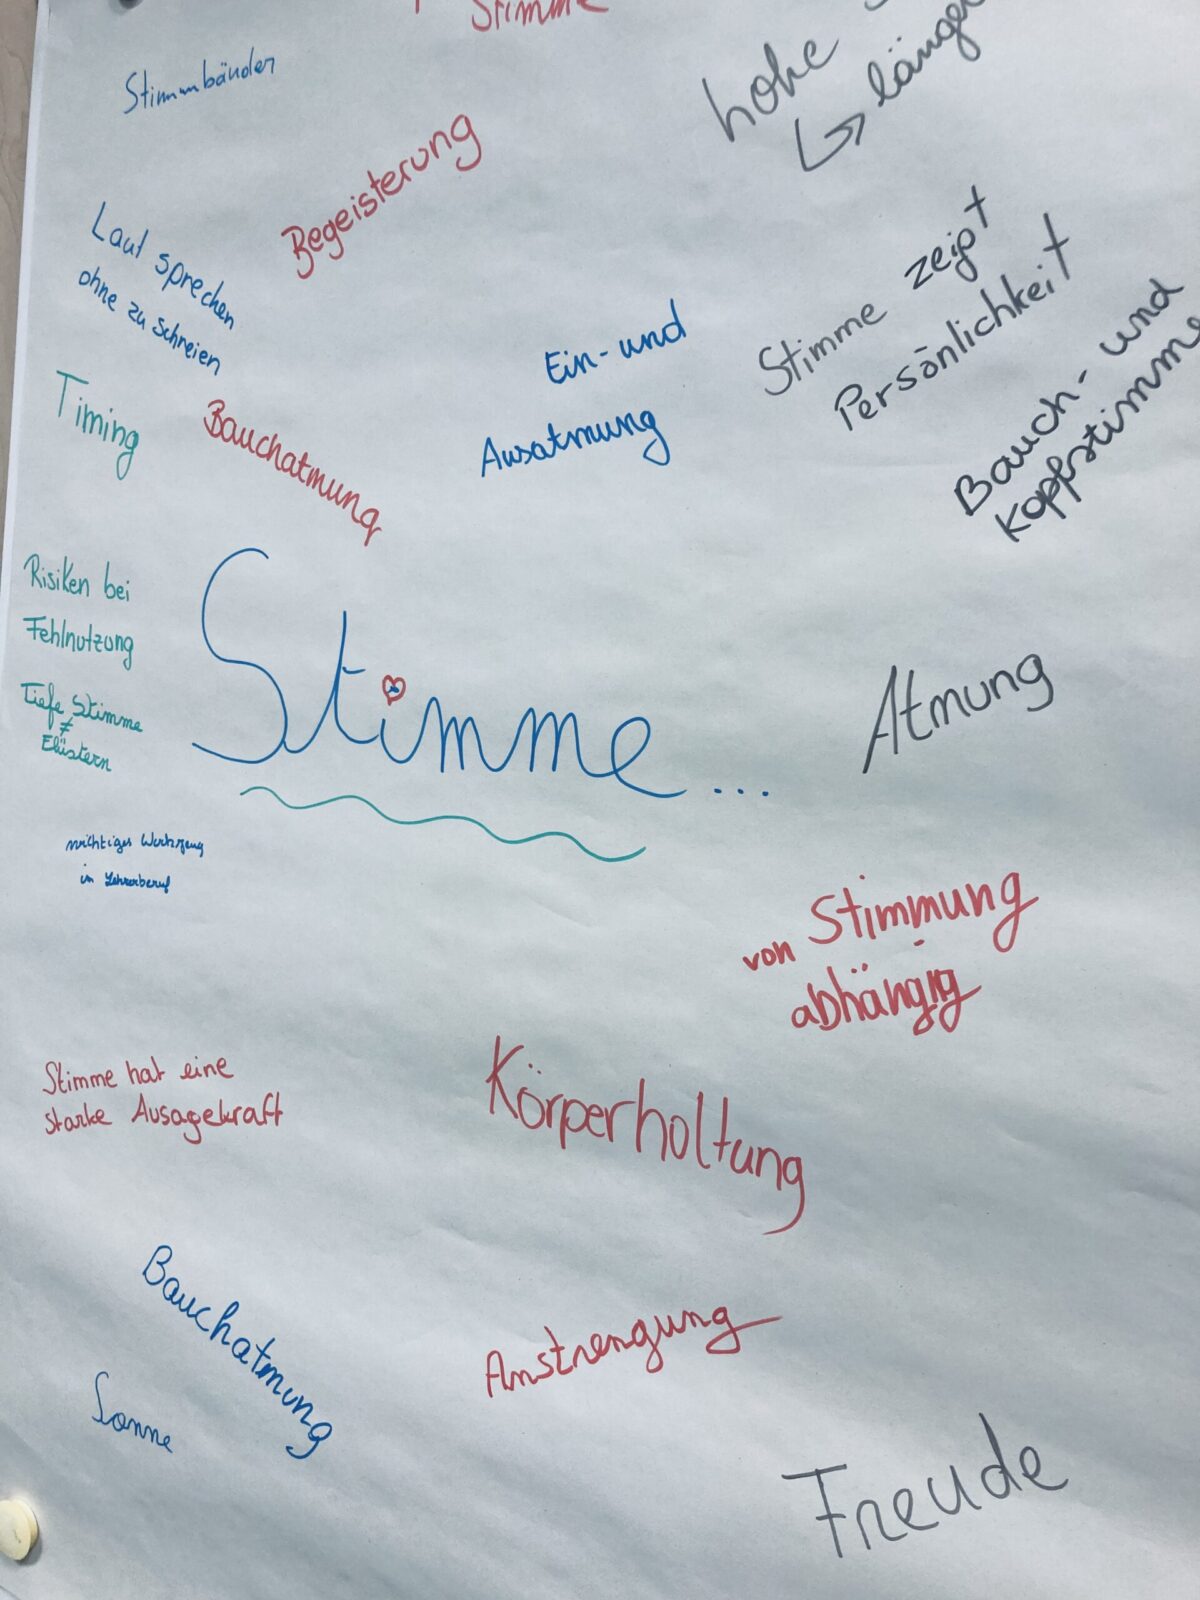 Stimme
Stimmbänder
hohe
länge
Begeisterung
Laut sprechen
ohne zu schreien
Ein- und
Ausatmung
Stimme zeigt
Persönlichkeit
Bauch- und
Kopfstimme
Timing
Bauchatmung
Risiken bei
Fehlnutzung
Tiefe Stimme
≠
Flüstern
Stimme...
Atmung
wichtiges Werkzeug
im Lehrerberuf
von Stimmung
abhängig
Stimme hat eine
starke Ausagekraft
Körperhaltung
Bauchatmung
Sonne
Anstrengung
Freude